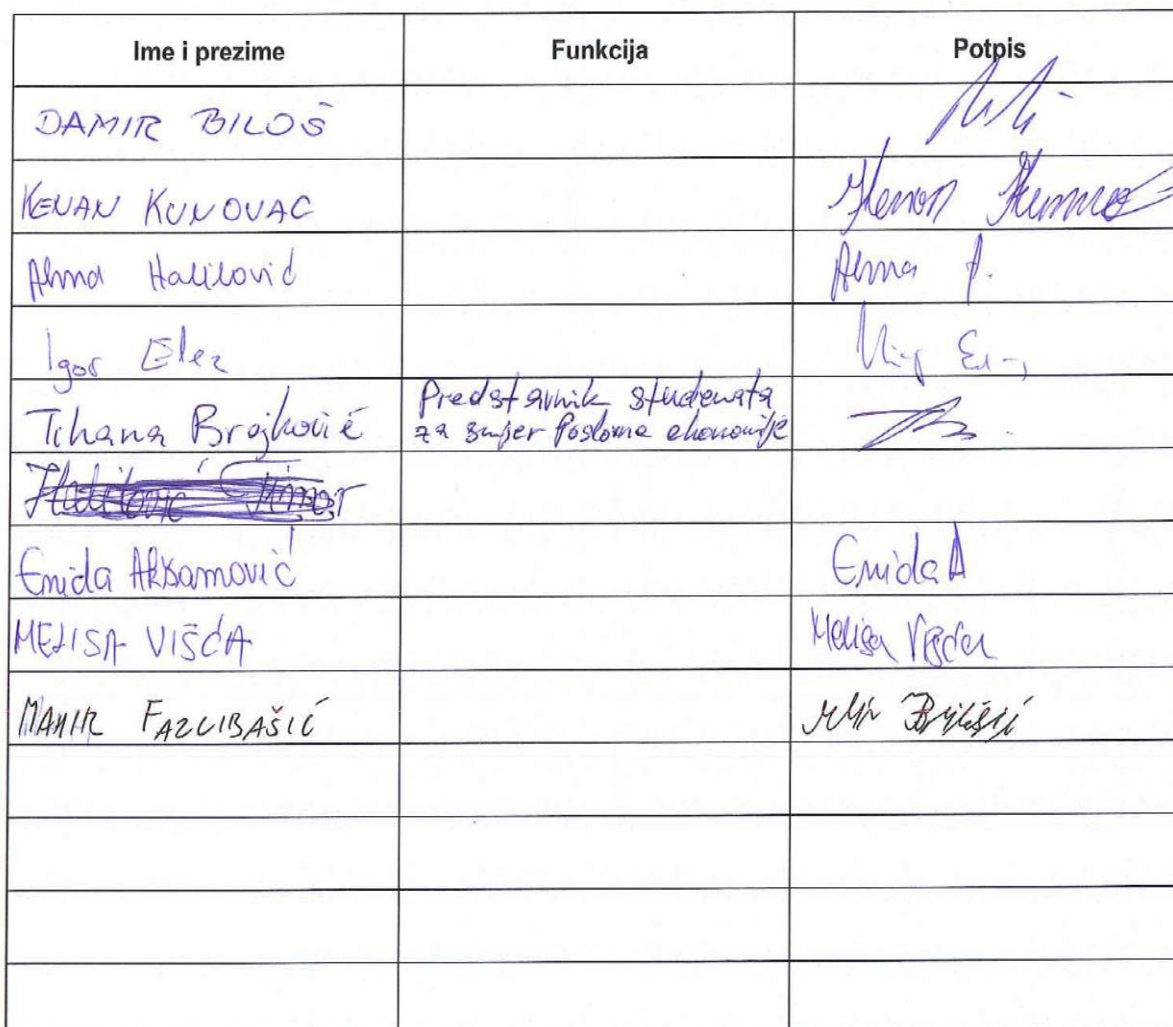 Ime i prezime Funkcija Potpis
DAMIR BILOŠ
KENAN KUNOVAC Kenan
Alma Halilović Alma
Igor Elez
Tihana Brojković Predstavnik studenata
za smjer Poslovne ekonomije
Halilović
Enida Akšamović Enida A
MELISA VIŠĆA Melisa Višća
MAHIR FAZLIBAŠIĆ